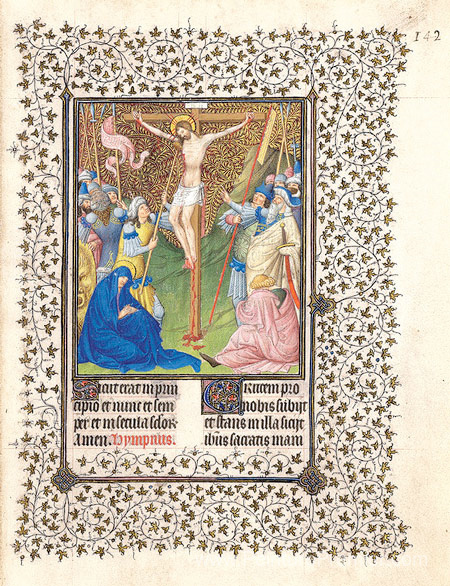 142
Sicut erat in prin
cipio et nunc et sem
per et in secula sclor
Amen. Ympnus.
Crucem pro
nobis subiit
et stans in illa siciit
ihus sacratis mani